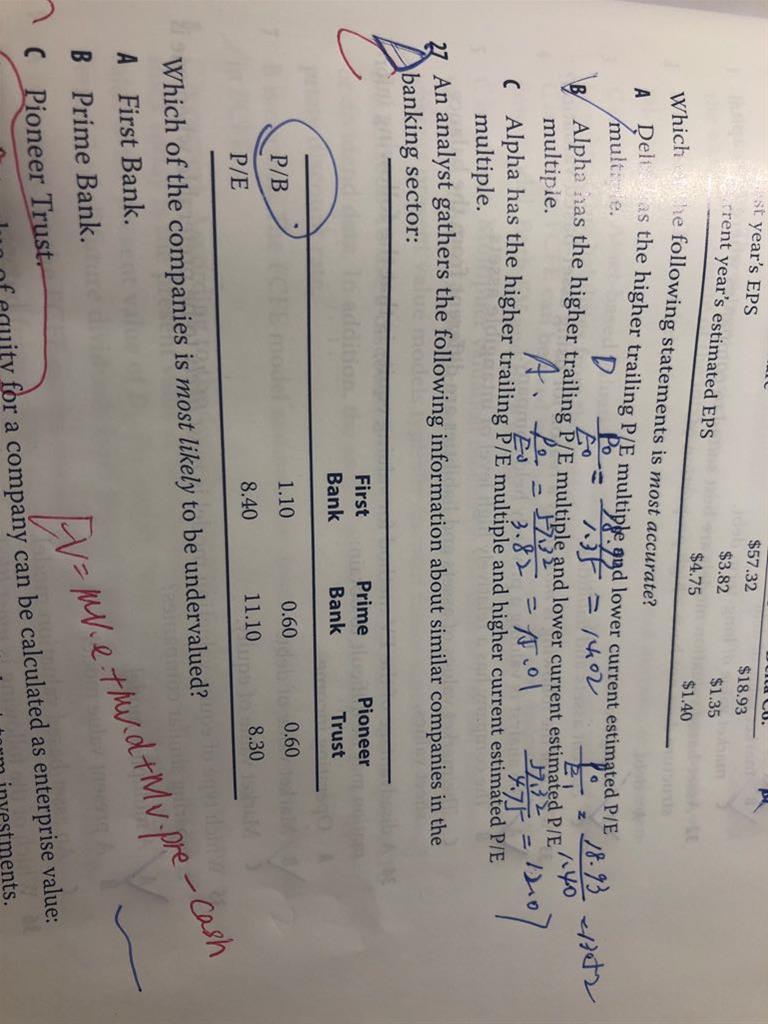 st year's EPS $57.32 $18.93
rrent year's estimated EPS $3.82 $1.35
$4.75 $1.40
Which he following statements is most accurate?
A Del as the higher trailing P/E multiple and lower current estimated P/E
multiple.
D P0/E0 = 18.93/1.35 = 14.02 P0/E1 = 18.93/1.40
B Alpha has the higher trailing P/E multiple and lower current estimated P/E
multiple.
A. P0/E0 = 57.32/3.82 = 15.01 57.32/4.75 = 12.07
C Alpha has the higher trailing P/E multiple and higher current estimated P/E
multiple.
27 An analyst gathers the following information about similar companies in the
banking sector:
First Bank Prime Bank Pioneer Trust
P/B 1.10 0.60 0.60
P/E 8.40 11.10 8.30
Which of the companies is most likely to be undervalued?
A First Bank.
B Prime Bank.
C Pioneer Trust.
EV = MV.e + MV.d + MV.pre - cash
of equity for a company can be calculated as enterprise value:
term investments.